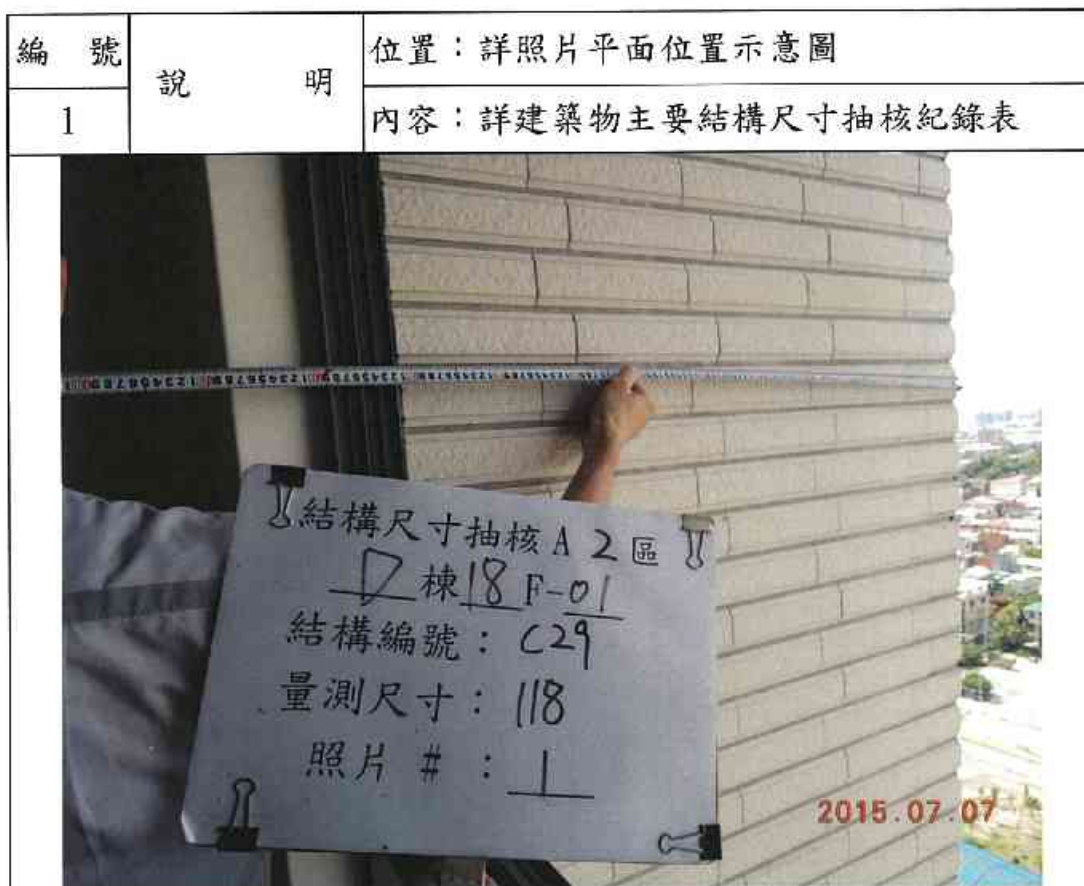 編 號
說 明
位置：詳照片平面位置示意圖
1
內容：詳建築物主要結構尺寸抽核紀錄表
結構尺寸抽核A 2 區
D 棟 18 F-01
結構編號：C29
量測尺寸：118
照片 #：1
2015.07.07